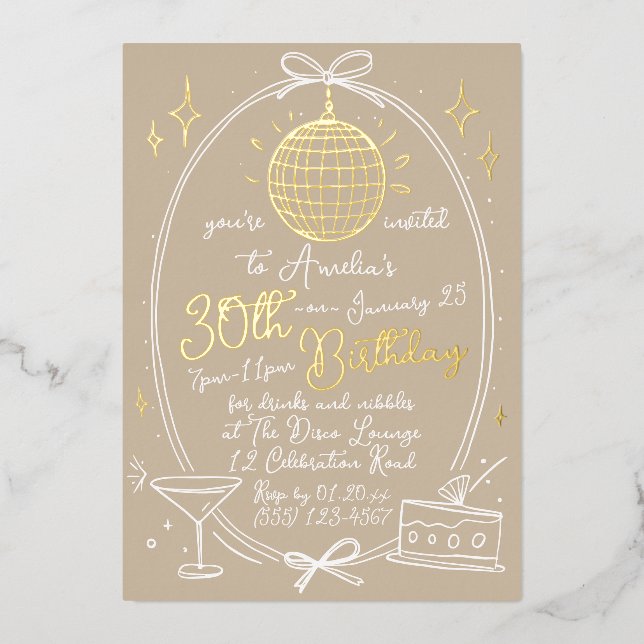 you're invited
to Amelia's
30th ~on~ January 25
7pm-11pm Birthday
for drinks and nibbles
at The Disco Lounge
12 Celebration Road
Rsvp by 01.20.xx
(555) 123-4567